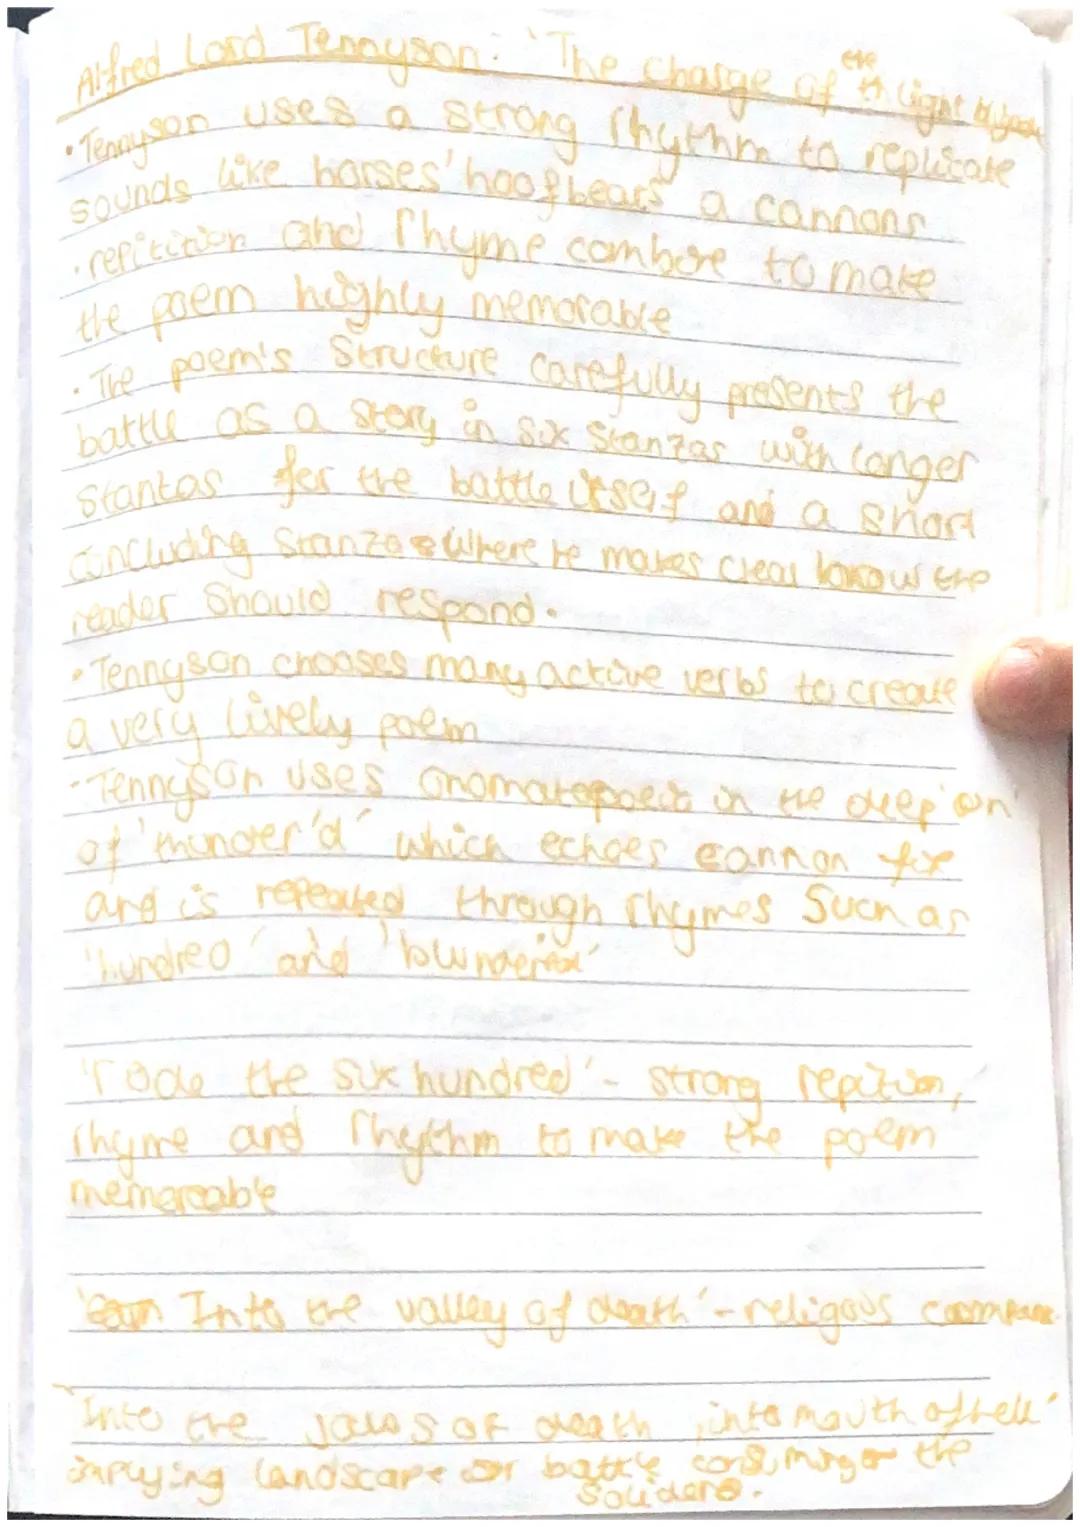 Alfred Lord Tennyson: 'The Charge of the Light
• Tennyson uses a strong rhythm to replicate
sounds like horses' hoofbeats a cannons
• repitition and rhyme combine to make
the poem highly memorable
• The poem's Structure carefully presents the
battle as a story in six Stanzas with longer
Stantas for the battle itself and a short
concluding Stanza where he makes clear how the
reader Should respond.
• Tennyson chooses many active verbs to create
a very lively poem
- Tennyson uses onomatopoeia in the deep 'un'
of 'thunder'd' which echoes cannon fire
and is repeated through rhymes Such as
'hundred' and 'blundered'
'rode the six hundred' - strong repition,
rhyme and rhythm to make the poem
memoreable
Into the valley of death' - religous
'Into the jaws of death, into mouth of hell'
implying landscape or battle consuming the
Soliders.